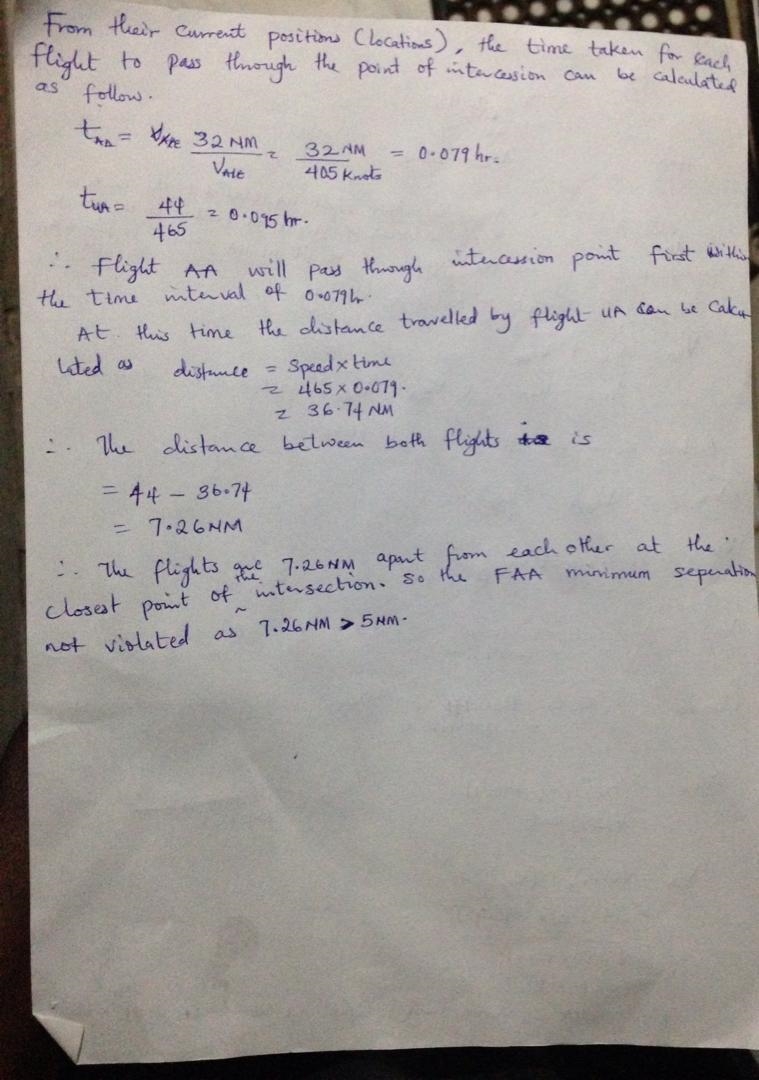 From their current positions (locations), the time taken for each
flight to pass through the point of intercession can be calculated
as follow.
tAA = 32 NM / VAIE = 32 NM / 405 Knots = 0.079 hr.
tUA = 44 / 465 = 0.095 hr.
∴ Flight AA will pass through intercession point first within
the time interval of 0.079h.
At this time the distance travelled by flight UA can be calcu
lated as distance = Speed x time
= 465 x 0.079.
= 36.74 NM
∴ The distance between both flights is
= 44 - 36.74
= 7.26 NM
∴ The flights are 7.26 NM apart from each other at the
closest point of the intersection. So the FAA minimum seperation
not violated as 7.26 NM > 5 NM.